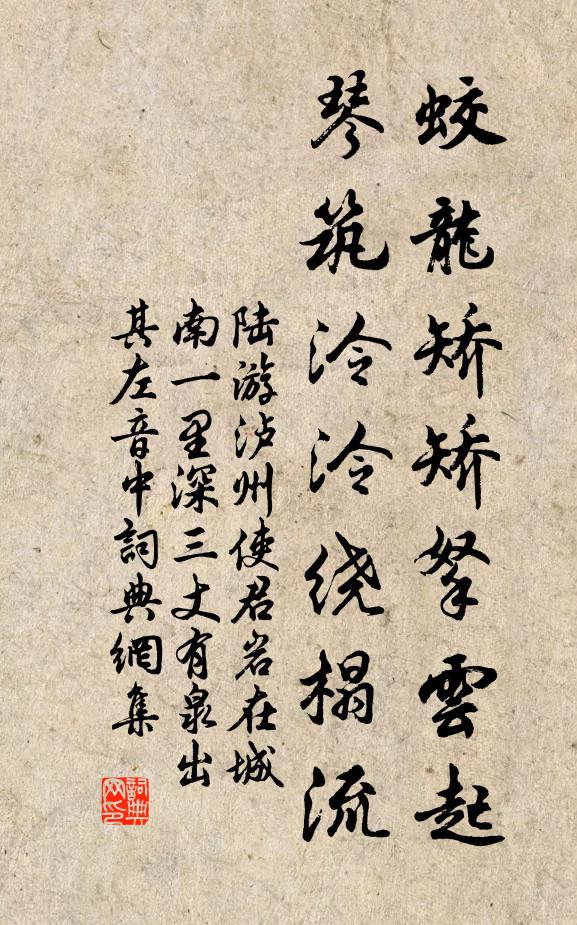 蛟龍矯矯拏雲起
琴筑泠泠绕榻流
陆游泸州使君岩在城
南一里深三丈有泉出
其左音中詞典網集
詞典网印